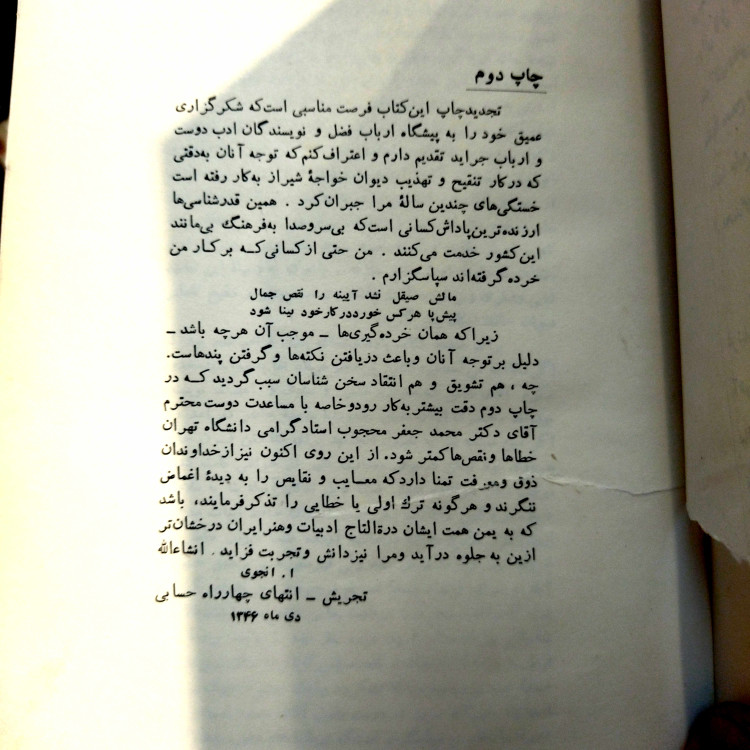 چاپ دوم
تجدیدچاپ این‌کتاب فرصت مناسبی است‌که شکرگزاری
عمیق خود را به پیشگاه ارباب فضل و نویسندگان ادب دوست
و ارباب جراید تقدیم دارم و اعتراف‌کنم‌که توجه آنان به‌دقتی
که درکار تنقیح و تهذیب دیوان خواجهٔ شیراز به‌کار رفته است
خستگی‌های چندین سالهٔ مرا جبران‌کرد . همین قدرشناسی‌ها
ارزنده‌ترین‌پاداش‌کسانی است‌که بی‌سروصدا به‌فرهنگ بی‌مانند
این‌کشور خدمت می‌کنند . من حتی از‌کسانی‌که بر‌کار من
خرده‌گرفته‌اند سپاسگزارم .
مالش صیقل نشد آیینه را نقص جمال
پیش‌پا هرکس خورددرکارخود بینا شود
زیراکه همان خرده‌گیری‌ها ـ موجب‌آن هرچه باشد ـ
دلیل برتوجه آنان وباعث دریافتن نکته‌ها وگرفتن پندهاست.
چه ، هم تشویق و هم انتقاد سخن شناسان سبب‌گردید که در
چاپ دوم دقت بیشتر به‌کار رودوخاصه با مساعدت دوست محترم
آقای دکتر محمد جعفر محجوب استادگرامی دانشگاه تهران
خطاها ونقص‌هاکمتر شود. از این روی اکنون نیزازخداوندان
ذوق ومعرفت تمنا داردکه معایب و نقایص را به دیدهٔ اغماض
ننگرند و هرگونه ترك اولی یا خطایی را تذکرفرمایند، باشد
که به یمن همت ایشان درةالتاج ادبیات وهنرایران درخشان‌تر
ازین به جلوه درآید ومرا نیزدانش وتجربت فزاید. انشاءالله
ا . انجوی
تجریش ـ انتهای چهارراه حسابی
دی ماه ۱۳۴۶